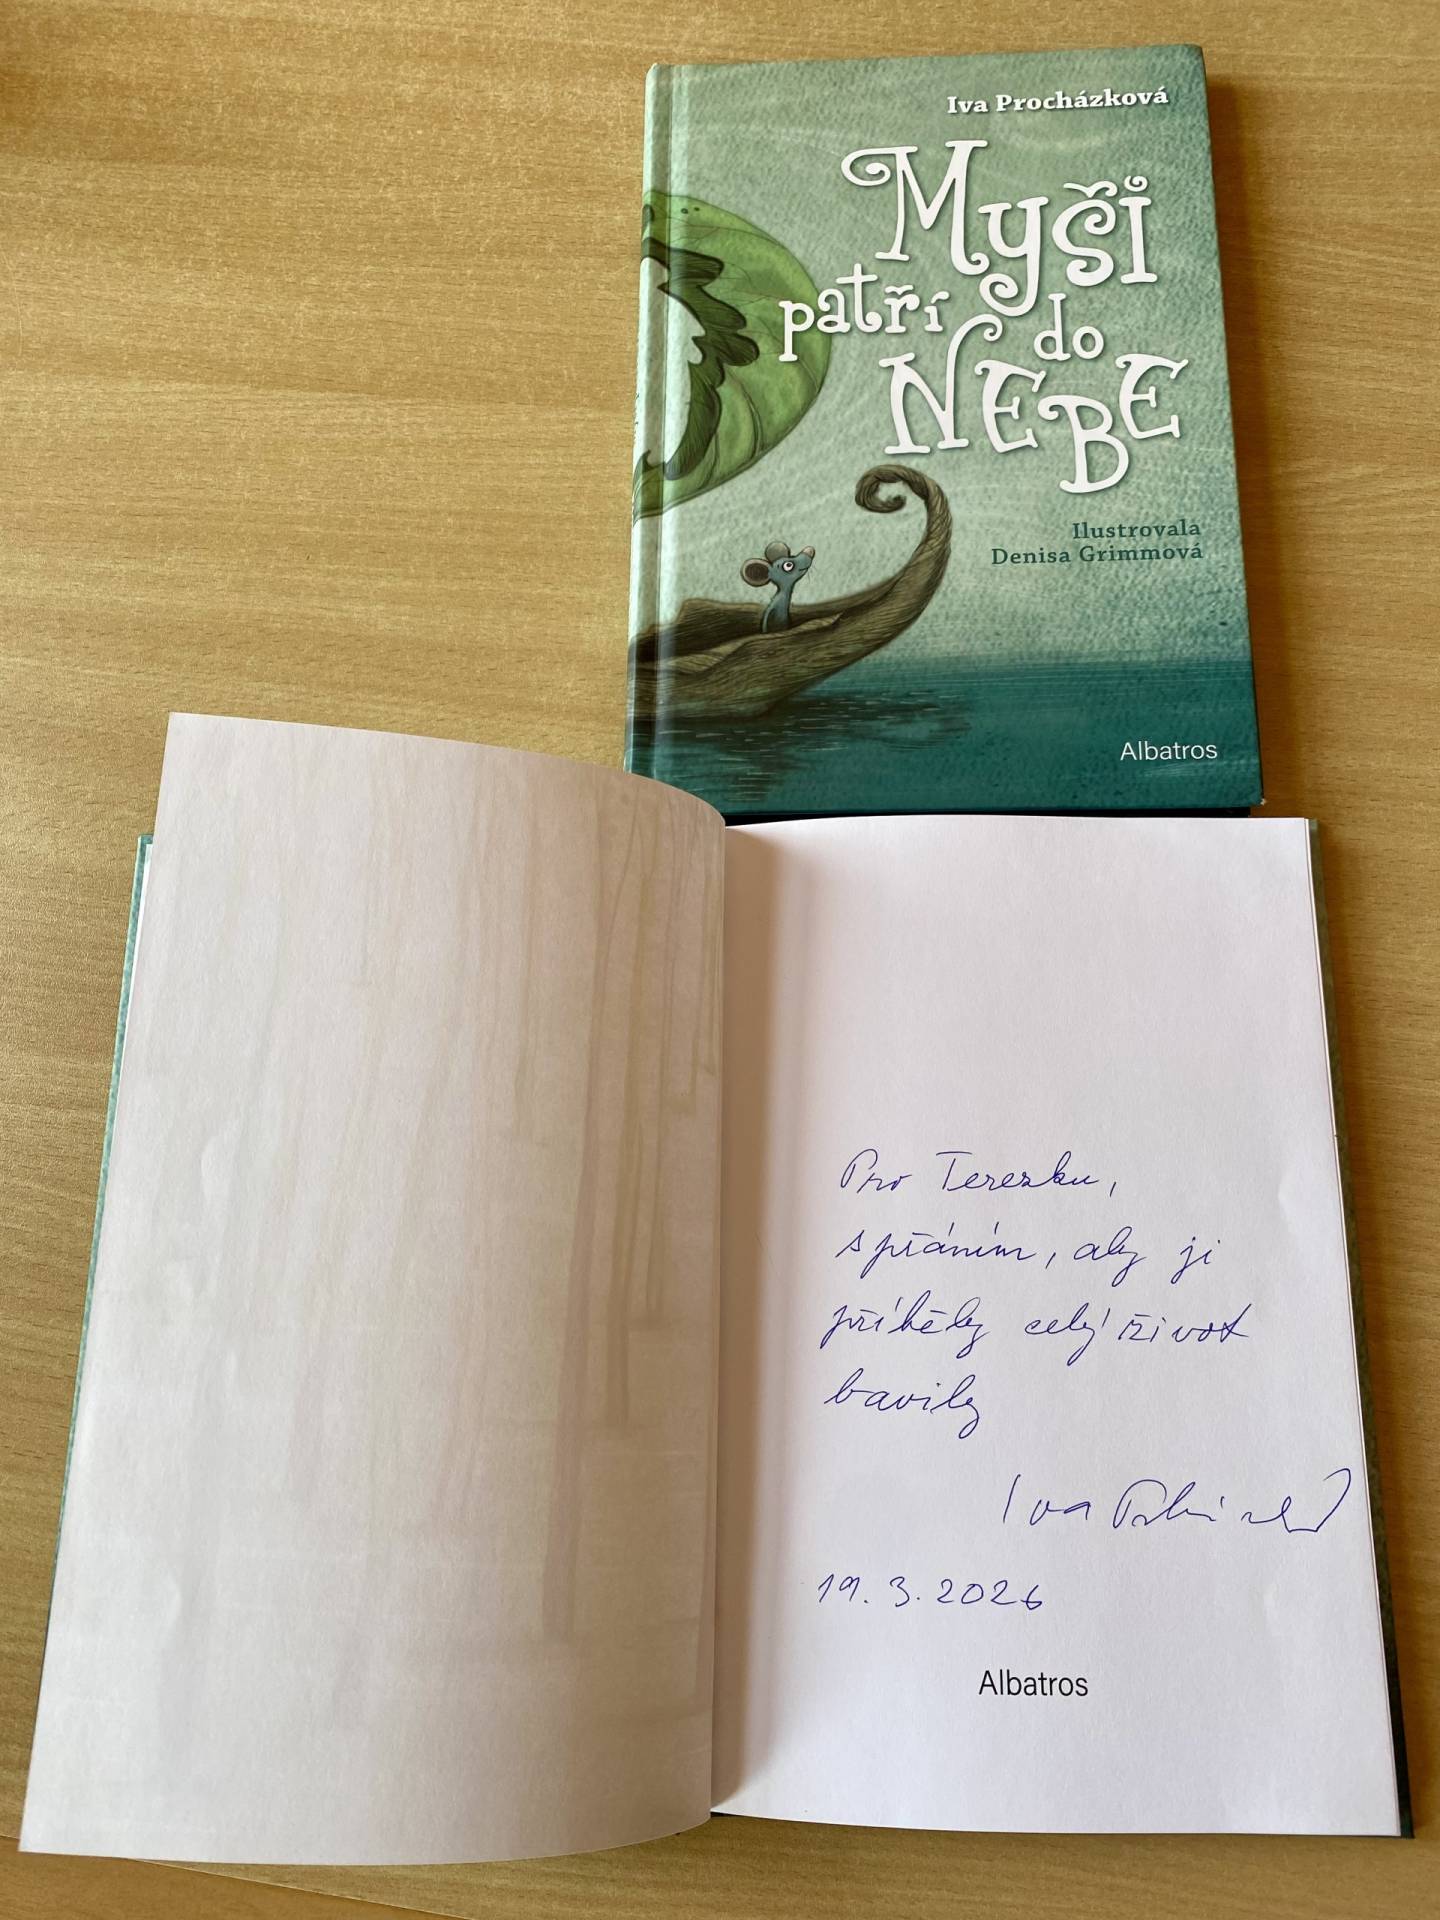 Iva Procházková
Myši
patří do
NEBE
Ilustrovala
Denisa Grimmová
Albatros
Pro Terezku,
s přáním, aby ji
příběhy celý život
bavily
Iva
19.3.2026
Albatros